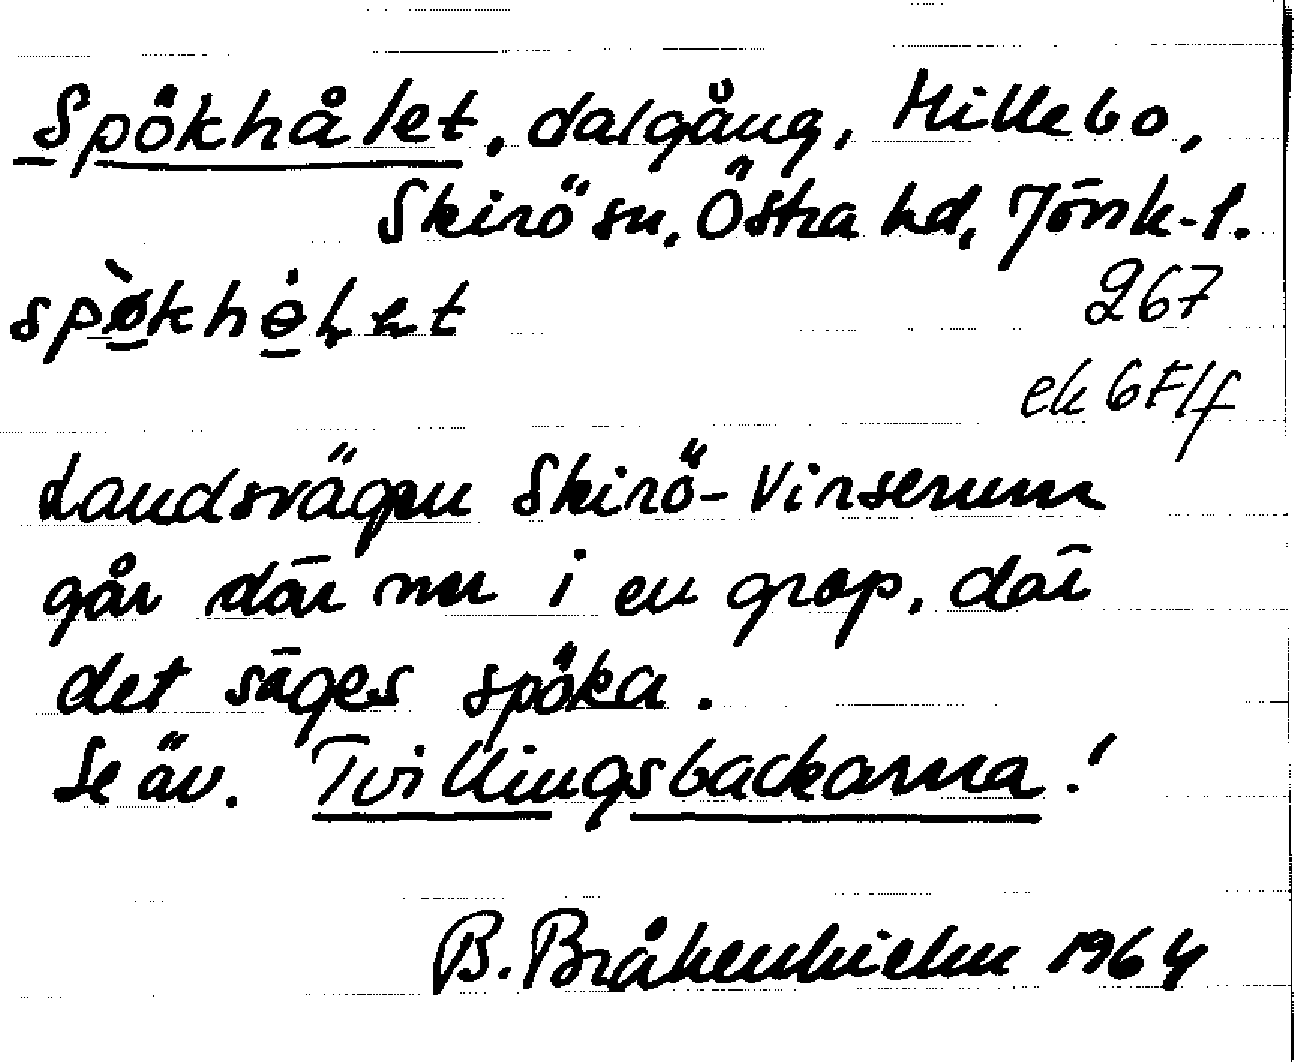 Spökhålet, dalgång, Hillebo,
Skirö sn, Östra hd, Jönk-l.
267
ek 6F1f
Landsvägen Skirö-Virserum
går där nu i en grop, där
det säges spöka.
Se äv. Tvillingsbackarna!
B. Bråkenhielm 1964